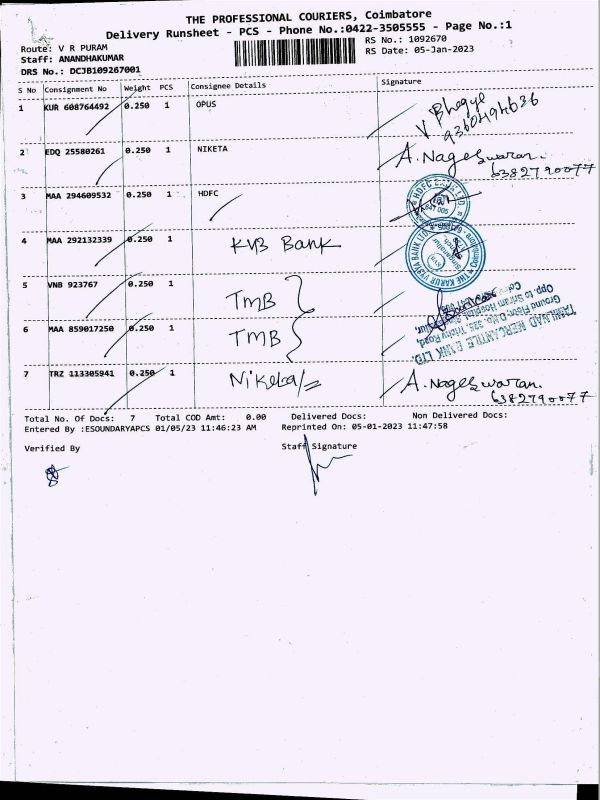 THE PROFESSIONAL COURIERS, Coimbatore
Delivery Runsheet - PCS - Phone No.:0422-3505555 - Page No.:1
Route: V R PURAM
RS No.: 1092670
Staff: ANANDHAKUMAR
RS Date: 05-Jan-2023
DRS No.: DCJB109267001
S No Consignment No Weight PCS Consignee Details Signature
1 KUR 608764492 0.250 1 OPUS V Bhagya
9360494636
2 EDQ 25580261 0.250 1 NIKETA A. Nageswaran.
6382790077
3 MAA 294609532 0.250 1 HDFC
4 MAA 292132339 0.250 1 KVB Bank
THE KARUR VYSYA BANK LTD
5 VNB 923767 0.250 1 TMB
6 MAA 859017250 0.250 1 TMB
TAMILNAD MERCANTILE BANK LTD
Ground Floor, D.No. 325, Trichy Road,
Opp. to Sriram Hospital
7 TRZ 113305941 0.250 1 Niketa/= A. Nageswaran.
6382790077
Total No. Of Docs: 7 Total COD Amt: 0.00 Delivered Docs: Non Delivered Docs:
Entered By :ESOUNDARYAPCS 01/05/23 11:46:23 AM Reprinted On: 05-01-2023 11:47:58
Verified By Staff Signature